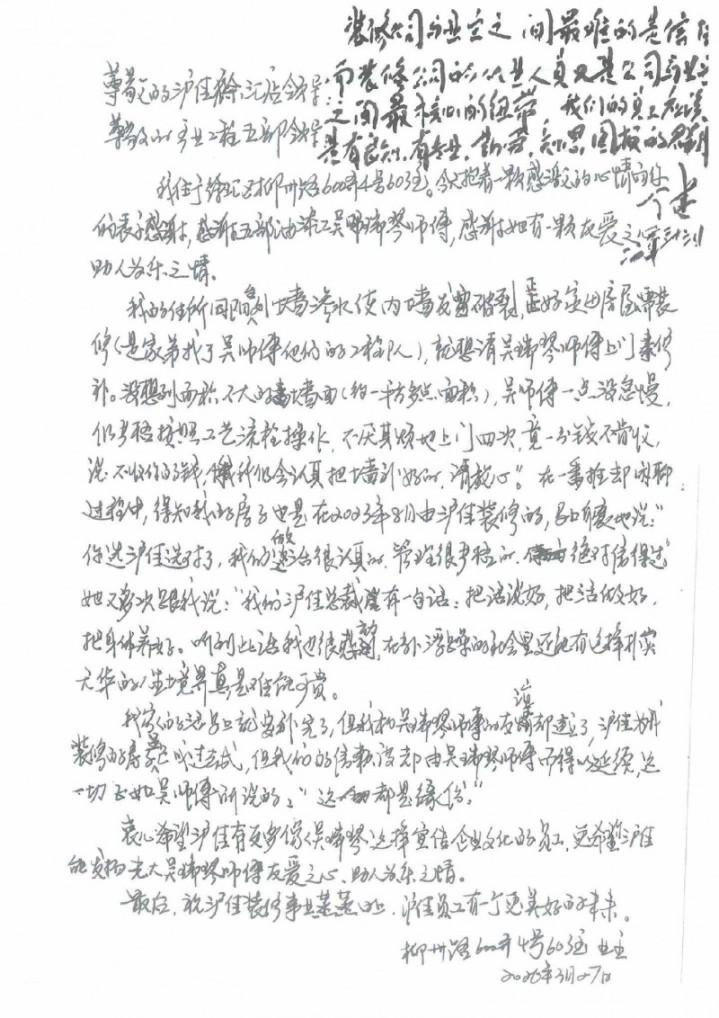 装修公司与业主之间最难的是信任
而装修公司的从业人员又是公司与业主
之间最核心的纽带 我们的员工应该
是有良心,有专业,
尊敬的沪佳徐汇店领导:
尊敬的专业工程五部领导
我住于徐汇区柳州路600弄4号603室。今天抱着一颗感激的心情向你
们表示感谢,感谢五部油漆工吴瑞琴师傅,感谢她有一颗友爱之心
助人为乐之情。
我的住所因外墙渗水使内墙发霉破裂,正好
修(是家弟找了吴师傅他们的工程队),就想请吴瑞琴师傅上门来修
补。没想到面积不大的墙面(约一平方多点面积),吴师傅一点没怠慢,
仍严格按照工艺流程操作,不厌其烦地上门四次,竟一分钱不肯收,
说:不收你的钱,我们会认真把墙补好的,请放心”。在一番推却闲聊
过程中,得知我的房子也是在2023年8月由沪佳装修的,说:“
你选沪佳选对了,我们的做活很认真的,管理很严格的,绝对信得过”
她又多次跟我说:“我们沪佳总裁有一句话:把话说好,把活做好,
把身体养好。听到此话我也很感动,在外浮躁的社会里还能有这样朴实
无华的人生境界真是难能可贵。
我家的活虽就要补完了,但我和吴瑞琴师傅的友谊却建立了,沪佳为我
装修的房屋已成过去式,但我们的信赖没却由吴瑞琴师傅而得以延续,这
一切正如吴师傅所说的:“这都是缘份。”
衷心希望沪佳有更多像吴瑞琴这样宣传企业文化的员工,更希望沪佳
能发扬光大吴瑞琴师傅友爱之心、助人为乐之情。
最后,祝沪佳装修事业蒸蒸日上,沪佳员工有一个更美好的未来。
柳州路600弄4号603室 业主
2026年3月27日